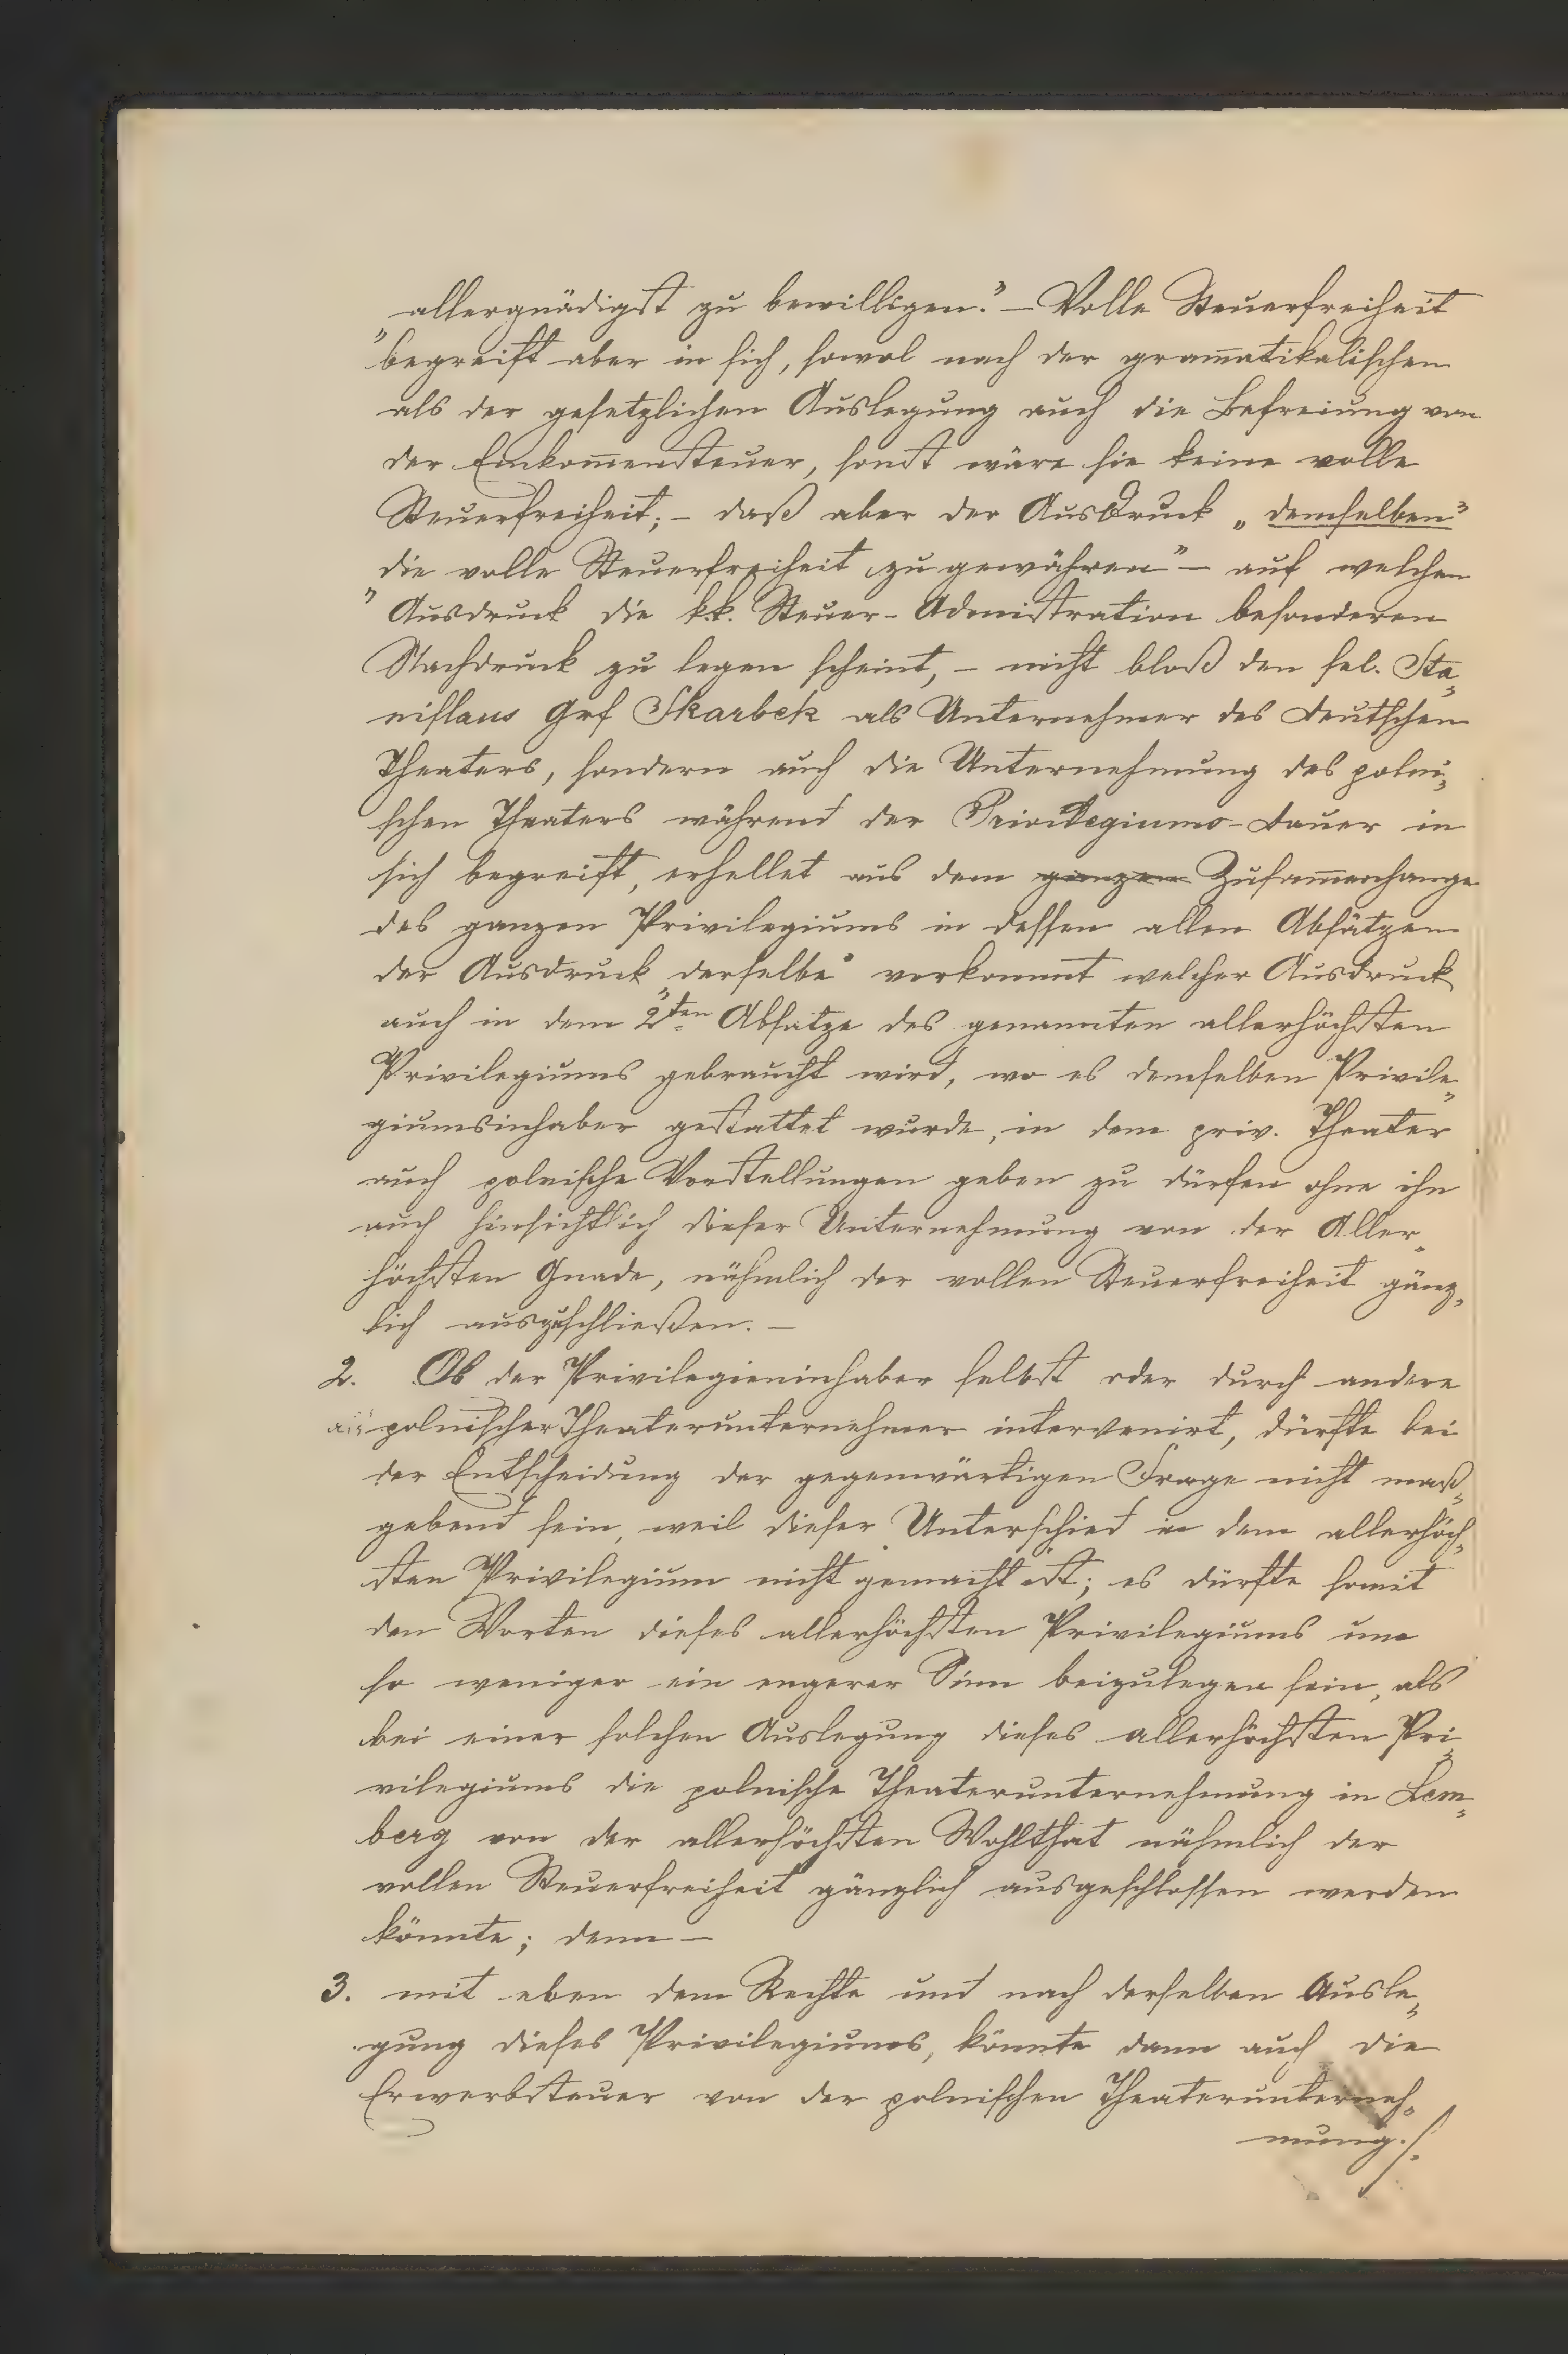 „allergnädigst zu bewilligen.“ – Volle Steuerfreiheit
begreift aber in sich, sowol nach der gram̅atikalischen
als der gesetzlichen Auslegung auch die Befreiung von
der Einkom̅ensteuer, sonst wäre sie keine volle
Steuerfreiheit; – daß aber der Ausdruck „demselben“
„die volle Steuerfreiheit zu gewähren“ – auf welchen
Ausdruck die k.k. Steuer-Admistration besonderen
Nachdruck zu legen scheint, – nicht bloß den sel. Sta„
nislaus Grf Skarbek als Unternehmer des deutschen
Theaters, sondern auch die Unternehmung des polni„
schen Theaters während der Privilegiums-dauer in
sich begreift, erhellet aus dem ganzen Zusam̅enhange
des ganzen Privilegiums in dessen allen Absätzen
der Ausdruck „derselbe“ vorkommt welcher Ausdruck
auch in dem 2ten Absatze des genannten allerhöchsten
Privilegiums gebraucht wird, wo es demselben Privile„
giumsinhaber gestattet wurde, in dem priv. Theater
auch polnische Vorstellungen geben zu dürfen ohne ihn
auch hinsichtlich dieser Unternehmung von der Aller„
höchsten Gnade, nähmlich der vollen Steuerfreiheit gänz„
lich auszuschließen. –
2. Ob der Privilegieninhaber selbst oder durch andere
polnischer Theaterunternehmer intervenirt, dürfte bei
der Entscheidung der gegenwärtigen Frage nicht maß„
gebend sein, weil dieser Unterschied in dem allerhöch„
sten Privilegium nicht gemacht ist; es dürfte somit
den Worten dieses allerhöchsten Privilegiums um
so weniger ein engerer Sinn beizulegen sein, als
bei einer solchen Auslegung dieses allerhöchsten Pri„
vilegiums die polnische Theaterunternehmung in Lem„
berg von der allerhöchsten Wohlthat nähmlich der
vollen Steuerfreiheit gänzlich ausgeschlossen werden
könnte; denn –
3. mit eben dem Rechte und nach derselben Ausle„
gung dieses Privilegiums, könnte dann auch die
Erwerbsteuer von der polnischen Theaterunterneh„
mung ./.